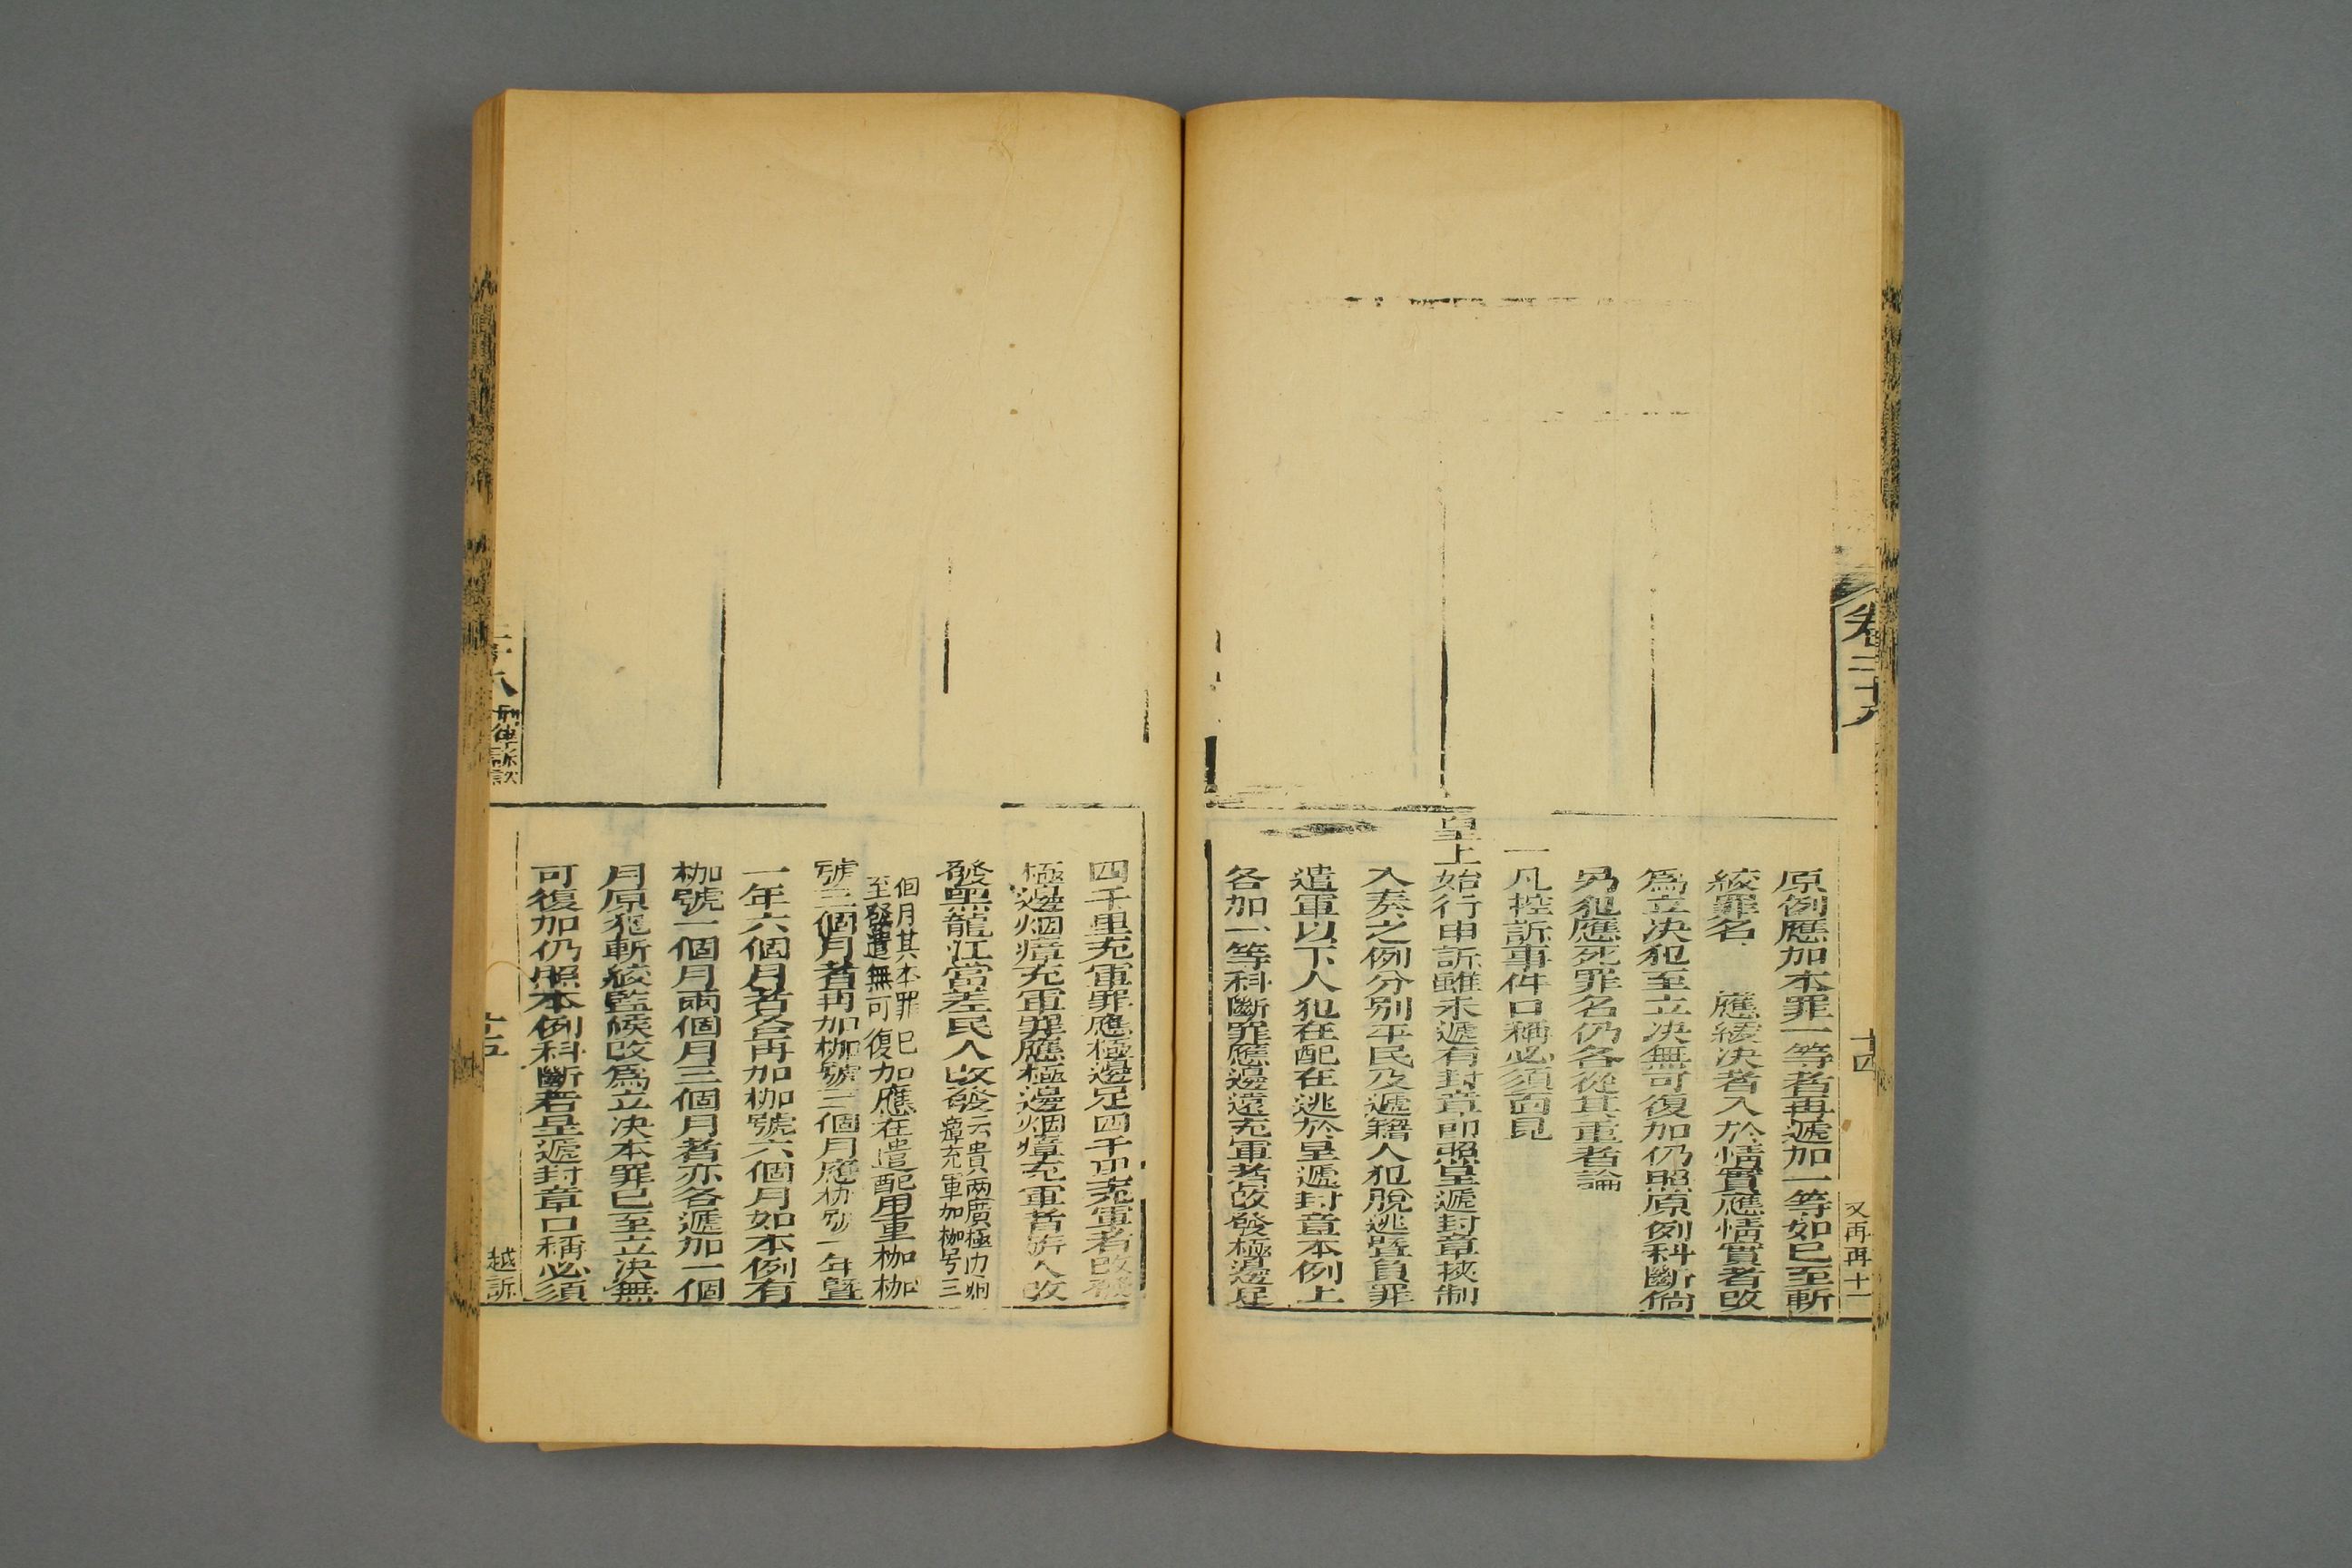 卷二十八
十四
又再再十一
原例應加本罪一等者再遞加一等如已至斬
絞罪名 應緩决者入於情實應情實者改
爲立决犯至立决無可復加仍照原例科斷倘
另犯應死罪名仍各從其重者論
一凡控訴事件口稱必須面見
皇上始行申訴雖未遞有封章卽照呈遞封章挾制
入奏之例分别平民及遞籍人犯脫逃曁負罪
遣軍以下人犯在配在逃於呈遞封章本例上
各加一等科斷罪應邊遠充軍者改發極邊足
四千里充軍罪應極邊足四千里充軍者改發
極邊烟瘴充軍罪應極邊烟瘴充軍者旂人改
發黑龍江當差民人改發云貴兩廣極边烟
瘴充軍加枷号三
個月其本罪已
至發遣無可復加應在遣配用重枷枷
號三個月者再加枷號三個月應枷號一年曁
一年六個月者各再加枷號六個月如本例有
枷號一個月兩個月三個月者亦各遞加一個
月原犯斬絞監候改爲立决本罪已至立决無
可復加仍照本例科斷若呈遞封章口稱必須
二十八
刑律訴訟
十五
越訴